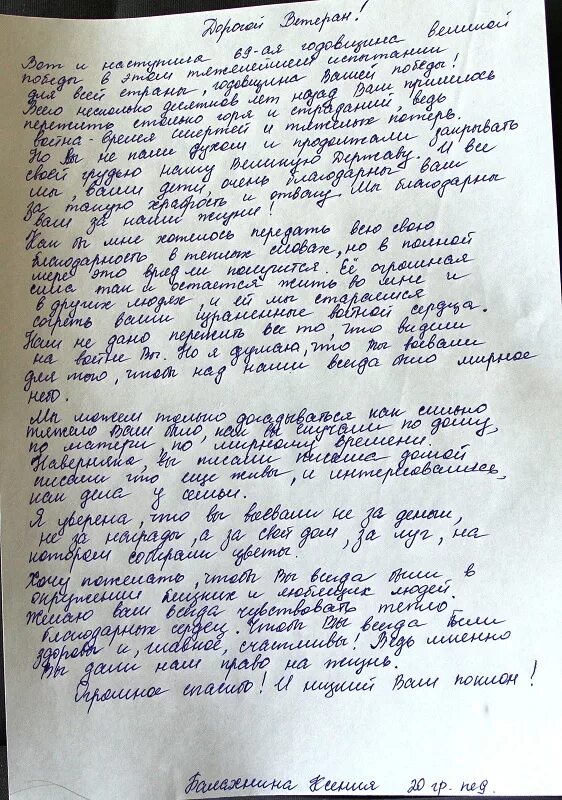 Дорогой Ветеран!
Вот и наступила 69-ая годовщина великой
победы в этом тяжелейшем испытании
для всей страны, годовщина Вашей победы!
Всего несколько десятков лет назад Вам пришлось
пережить столько горя и страданий, ведь
война - время смертей и тяжелых потерь.
Но Вы не пали духом и продолжали закрывать
своей грудью нашу Великую Державу. И все
мы, ваши дети, очень благодарны вам
за такую храбрость и отвагу. Мы благодарны
вам за наши жизни!
Как бы мне хотелось передать всю свою
благодарность в теплых словах, но в полной
мере это вряд ли получится. Её огромная
сила так и остаётся жить во мне и
в других людях, и ей мы стараемся
согреть ваши израненные войной сердца.
Нам не дано пережить все то, что видели
на войне Вы. Но я думаю, что Вы воевали
для того, чтобы над нами всегда было мирное
небо.
Мы можем только догадываться как сильно
тяжело Вам было, как вы скучали по дому,
по матери, по мирному времени.
Наверняка, вы писали письма домой
писали что еще живы, и интересовались,
как дела у семьи.
Я уверена, что вы воевали не за деньги,
не за награды, а за свой дом, за луг, на
котором собирали цветы.
Хочу пожелать, чтобы Вы всегда были в
окружении близких и любящих людей.
Желаю вам всегда чувствовать тепло
благодарных сердец. Чтобы Вы всегда были
здоровы и, главное, счастливы! Ведь именно
Вы дали нам право на жизнь.
Огромное спасибо! И низкий Вам поклон!
Балахнина Ксения 20 гр. пед.